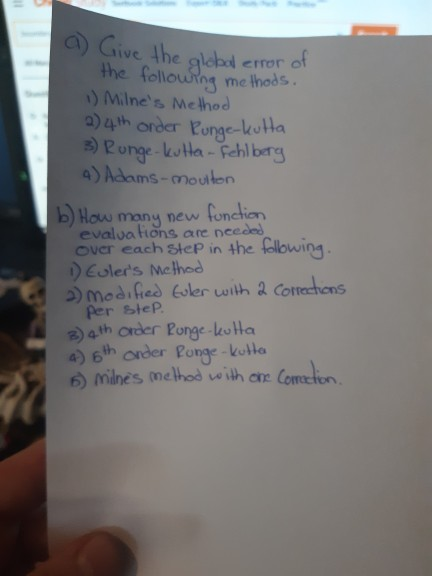 Textbook Solutions Expert Q&A Study Pack Practice
a) Give the global error of
the following methods.
1) Milne's Method
2) 4th order Runge-kutta
3) Runge-kutta-Fehlberg
4) Adams-moulton
b) How many new function
evaluations are needed
over each step in the following.
1) Euler's Method
2) modified Euler with 2 Corrections
per step.
3) 4th order Runge-kutta
4) 5th order Runge-kutta
5) Milne's method with one Correction.